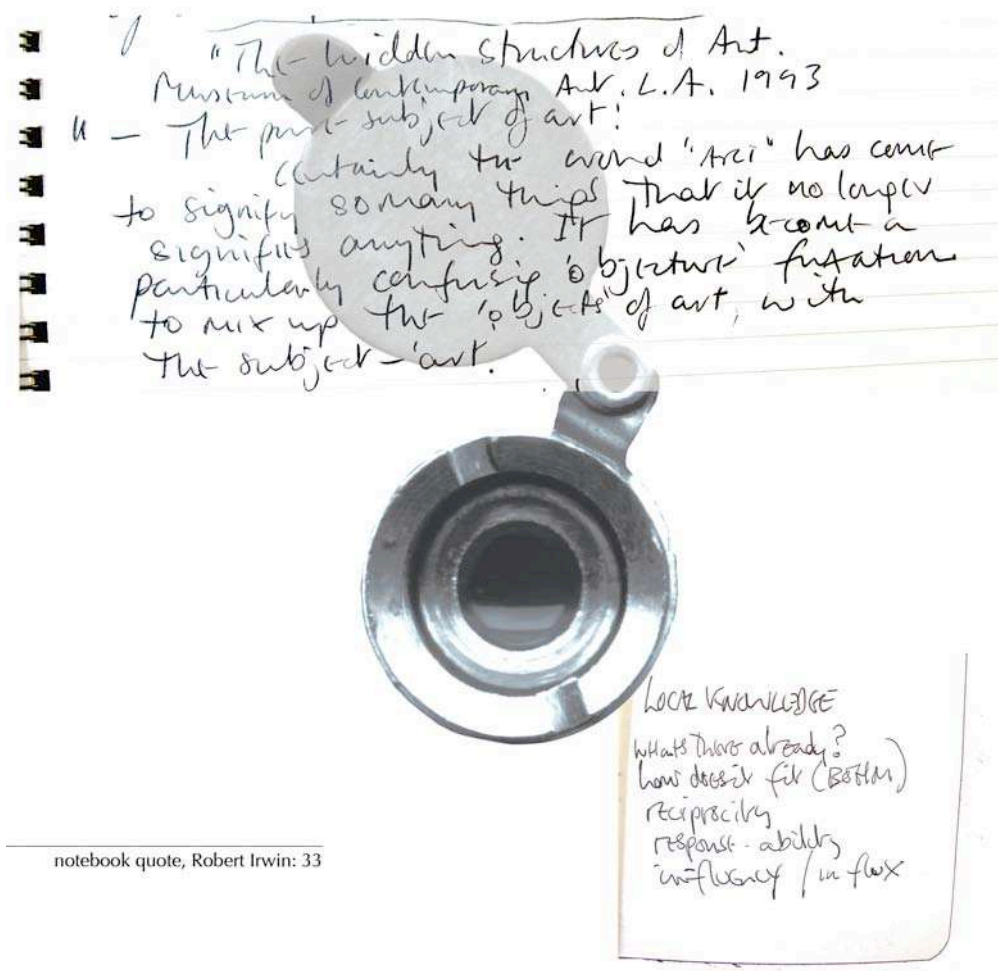 "The hidden structures of Art.
Museum of Contemporary Art. L.A. 1993
" – The pure subject of art!
certainly the word "Art" has come
to signify so many things that it no longer
signifies anything. It has become a
particularly confusing 'objecture'
to mix up the 'objects' of art, with
the subject – 'art.
LOCAL KNOWLEDGE
whats there already?
how does it fit (BOHM)
reciprocity
response-ability
influency / in flux
notebook quote, Robert Irwin: 33